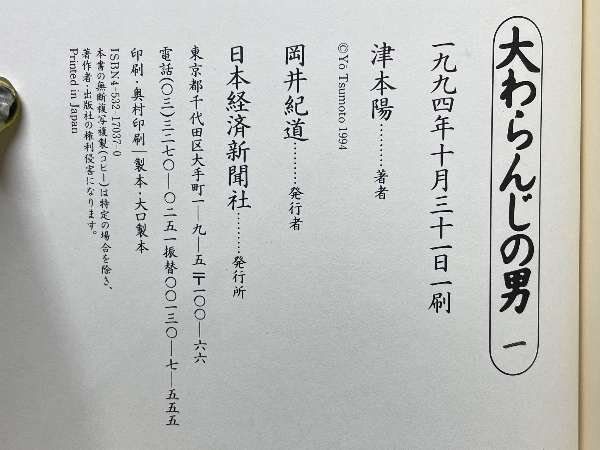 大わらんじの男 一
一九九四年十月三十一日一刷
津本陽………著者
©Yō Tsumoto 1994
岡井紀道………発行者
日本経済新聞社………発行所
東京都千代田区大手町一―九―五〒一〇〇―六六
電話(〇三)三二七〇―〇二五一振替〇〇一三〇―七―五五五
印刷・奥村印刷|製本・大口製本
ISBN4-532-17037-0
本書の無断複写複製(コピー)は特定の場合を除き、
著作者・出版社の権利侵害になります。
Printed in Japan